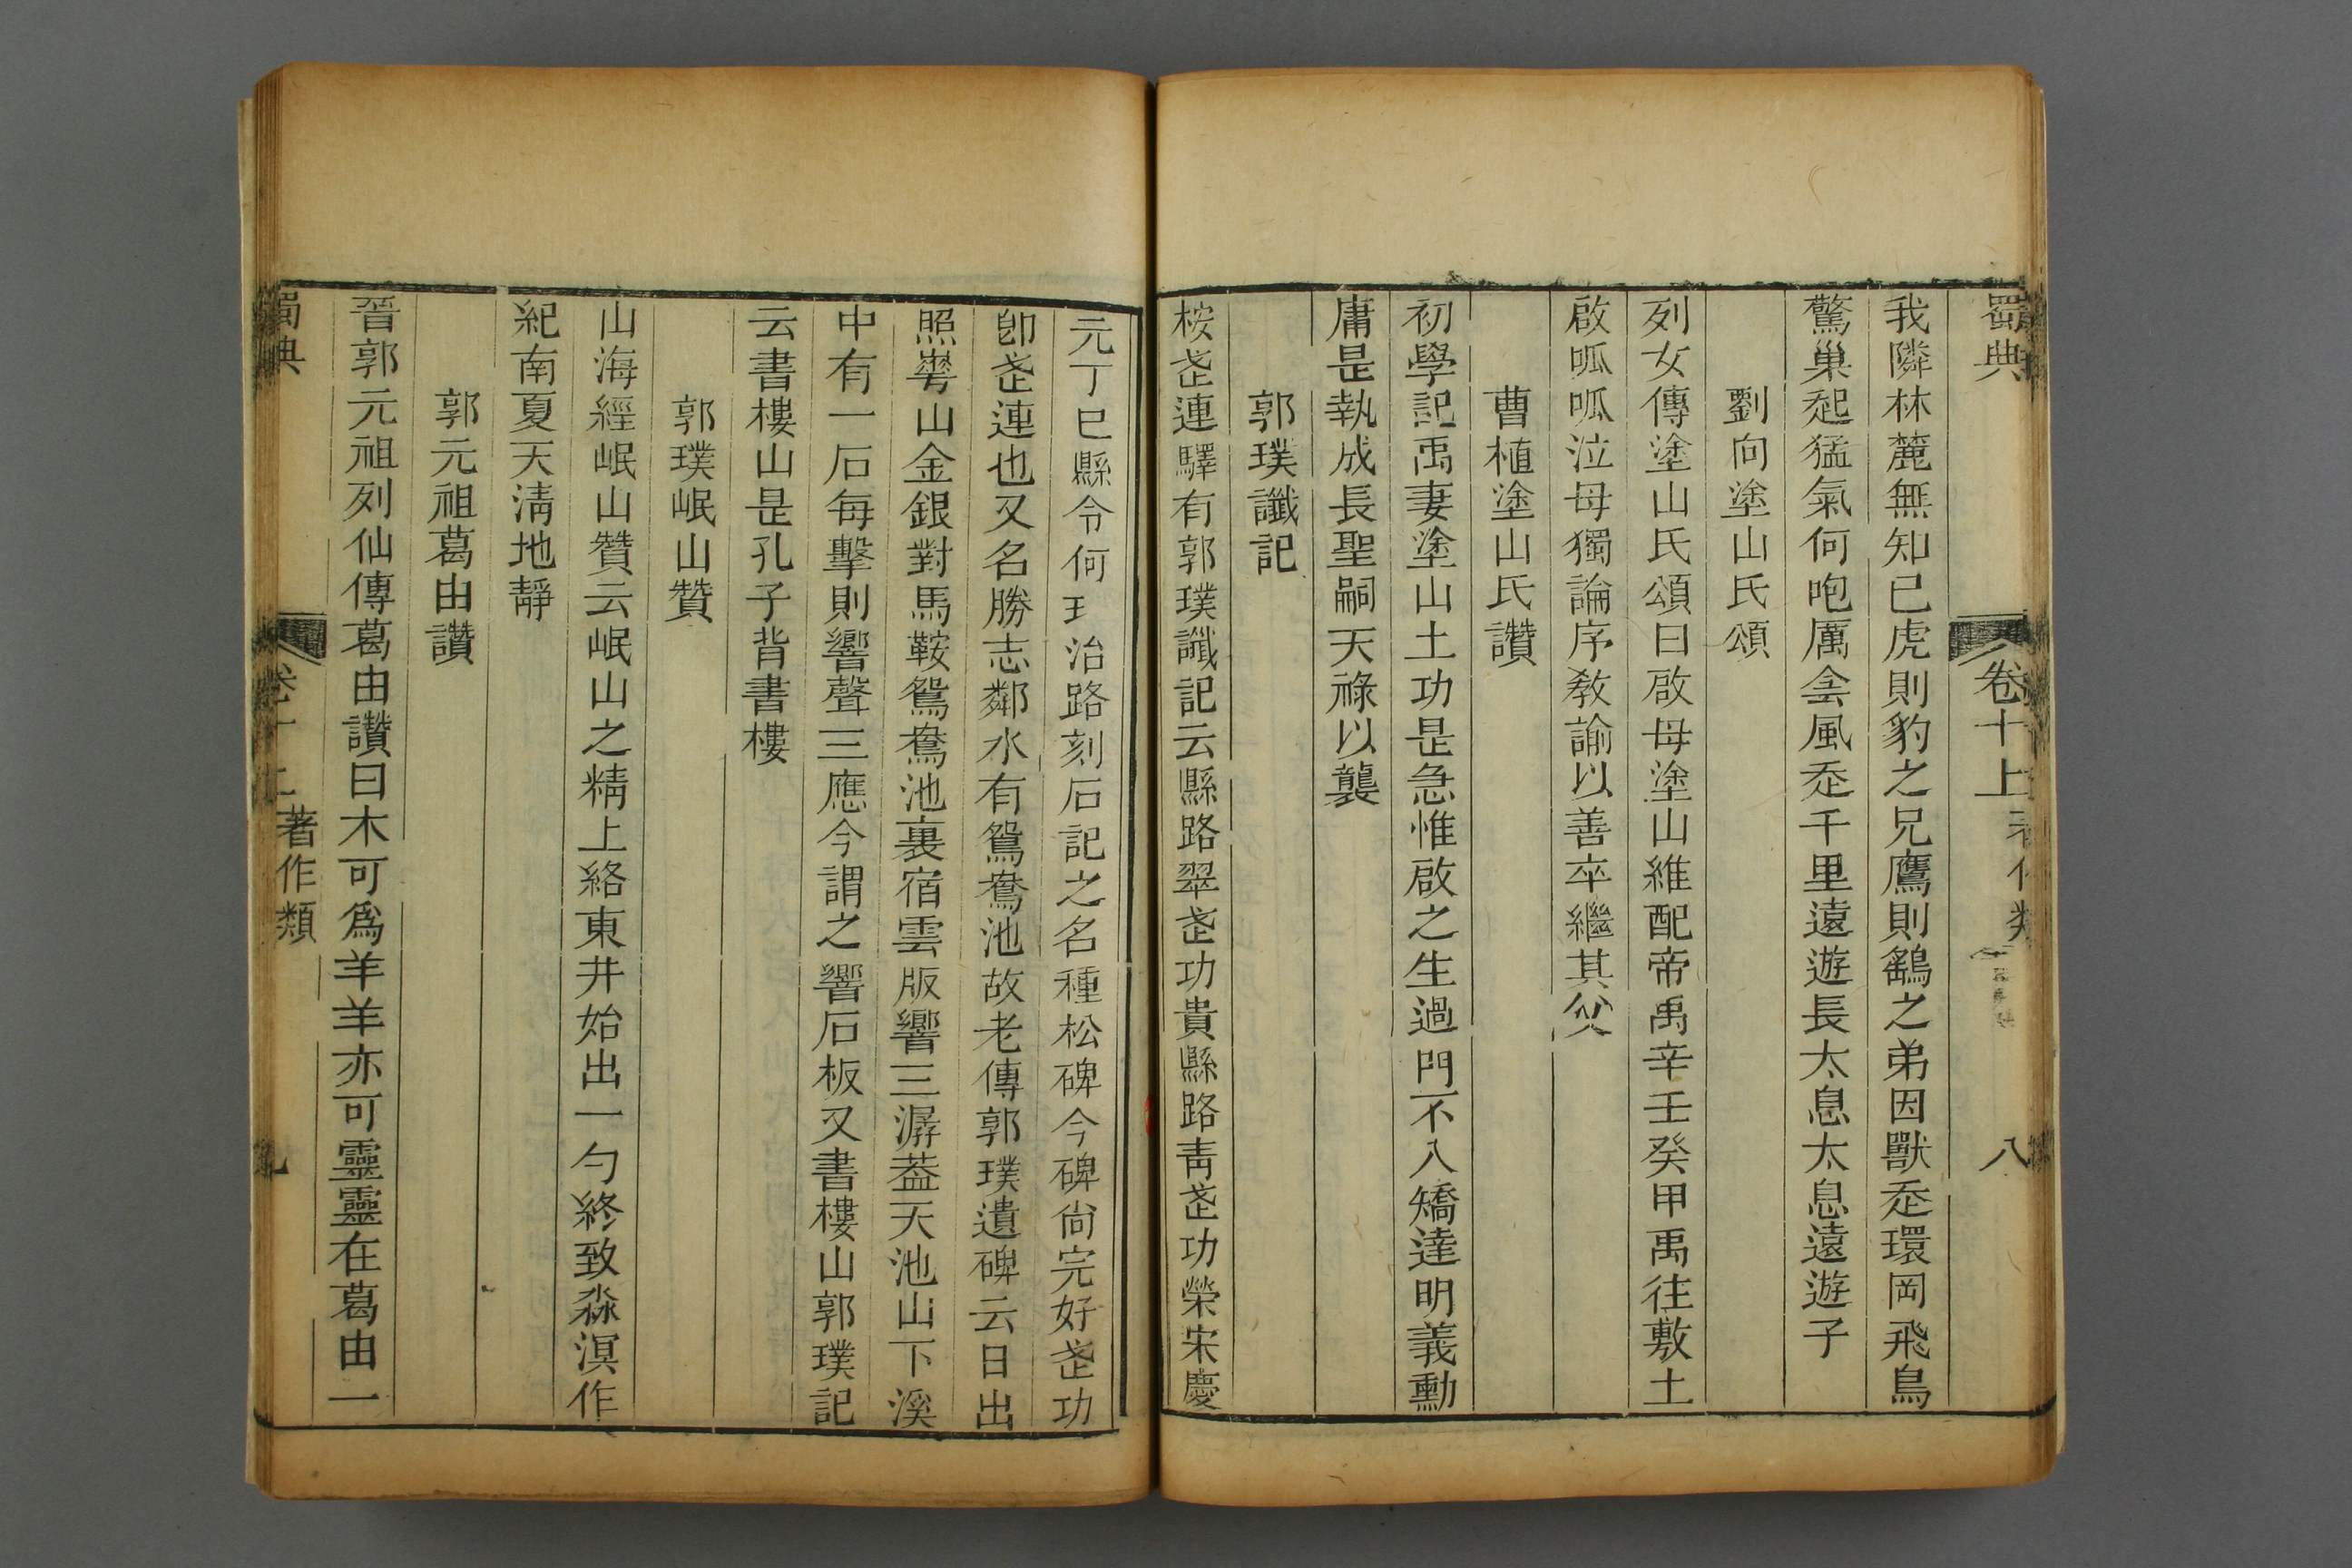 蜀典
卷十上
八
我隣林麓無知已虎則豹之兄鷹則鷂之弟因獸歪環岡飛鳥
驚巢起猛氣何咆厲侌風歪千里遠遊長太息太息遠遊子
劉向塗山氏頌
列女傳塗山氏頌曰啟母塗山維配帝禹辛壬癸甲禹往敷土
啟呱呱泣母獨論序敎諭以善卒繼其父
曹植塗山氏讚
初學記禹妻塗山土功是急惟啟之生過門不入矯達明義勳
庸是執成長聖嗣天祿以襲
郭璞讖記
桉歨連驛有郭璞讖記云縣路翠歨功貴縣路靑歨功榮宋慶
元丁巳縣令何玨治路刻石記之名種松碑今碑尙完好歨功
卽歨連也又名勝志鄰水有鴛鴦池故老傳郭璞遺碑云日出
照粵山金銀對馬鞍鴛鴦池裏宿雲版響三潺葢天池山下溪
中有一石每擊則響聲三應今謂之響石板又書樓山郭璞記
云書樓山是孔子背書樓
郭璞岷山贊
山海經岷山贊云岷山之精上絡東井始出一勺終致淼溟作
紀南夏天淸地靜
郭元祖葛由讚
晉郭元祖列仙傳葛由讚曰木可爲羊羊亦可靈靈在葛由一
蜀典
卷十上
著作類
九